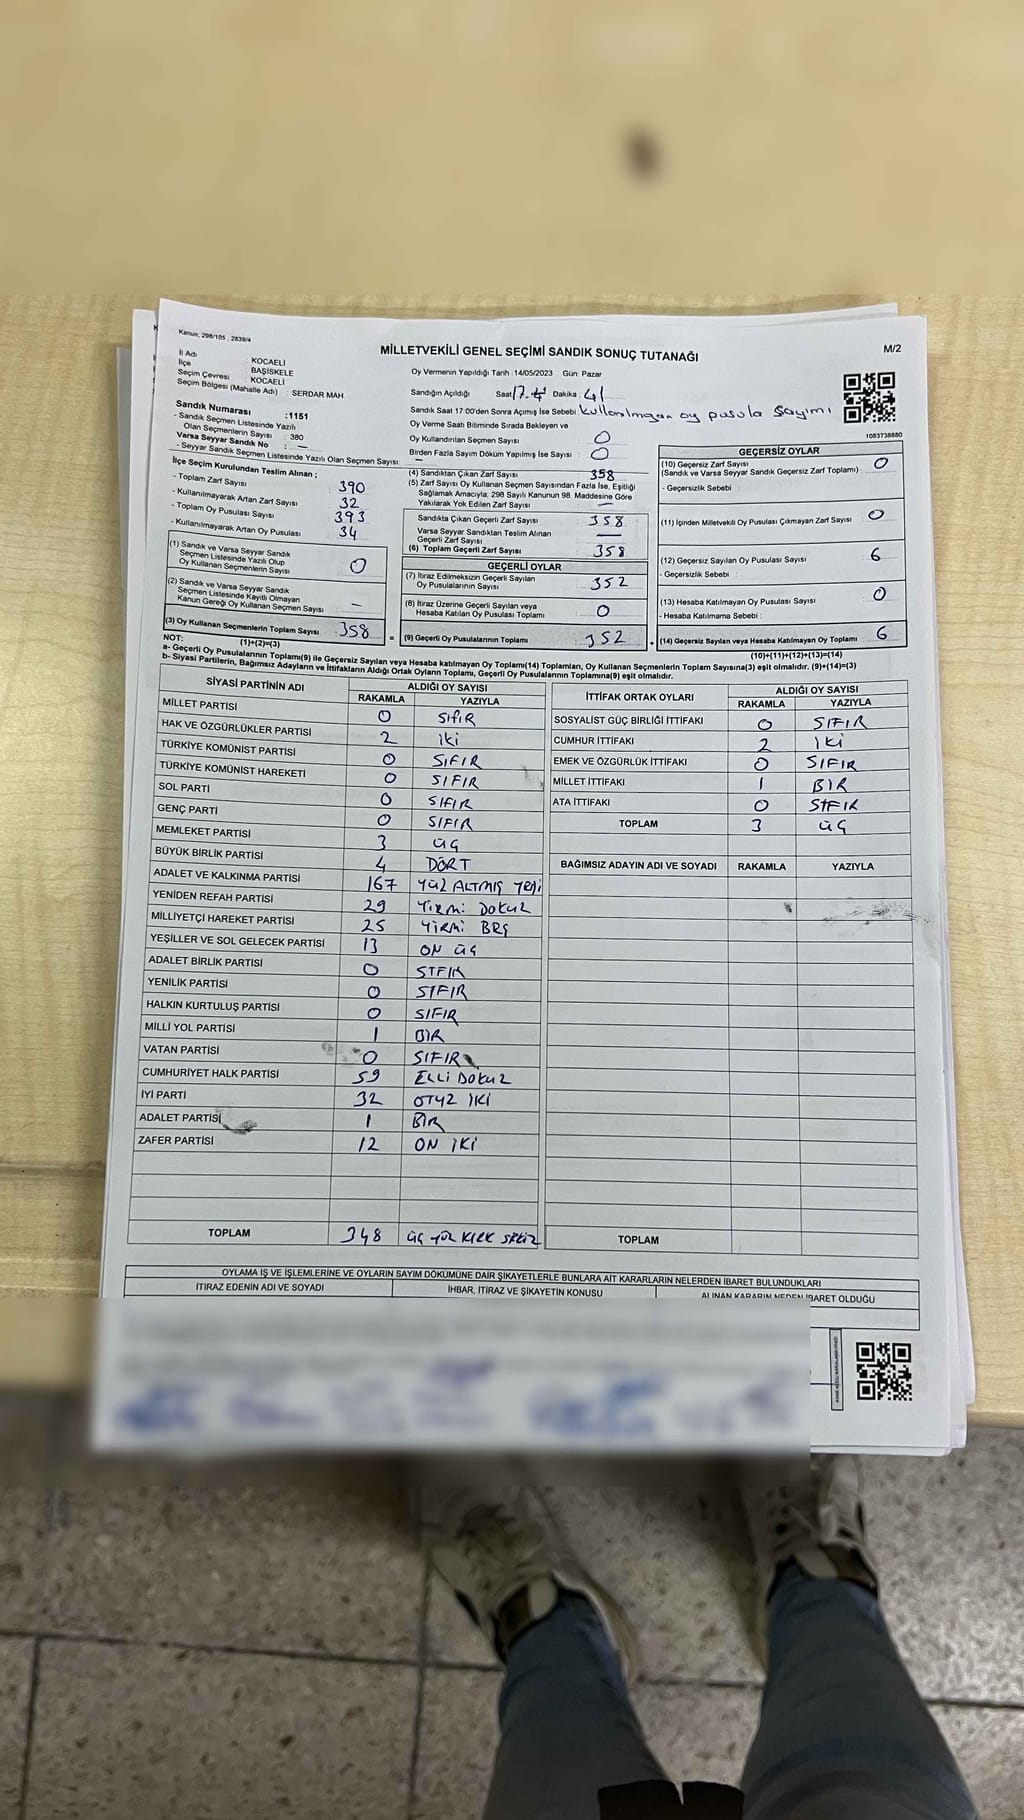 Kanun, 298/105 , 2839/4
MİLLETVEKİLİ GENEL SEÇİMİ SANDIK SONUÇ TUTANAĞI
M/2
İl Adı : KOCAELİ
İlçe : BAŞİSKELE
Seçim Çevresi : KOCAELİ
Seçim Bölgesi (Mahalle Adı) : SERDAR MAH
Sandık Numarası :1151
- Sandık Seçmen Listesinde Yazılı
Olan Seçmenlerin Sayısı : 380
Varsa Seyyar Sandık No : —
- Seyyar Sandık Seçmen Listesinde Yazılı Olan Seçmen Sayısı: —
Oy Vermenin Yapıldığı Tarih :14/05/2023 Gün: Pazar
Sandığın Açıldığı Saat: 17 Dakika : 41
Sandık Saat 17.00'den Sonra Açımış İse Sebebi: kullanılmayan oy pusula sayımı
Oy Verme Saati Bitiminde Sırada Bekleyen ve
Oy Kullandırılan Seçmen Sayısı : 0
Birden Fazla Sayım Döküm Yapılmış İse Sayısı : 0
1083738880
İlçe Seçim Kurulundan Teslim Alınan ;
- Toplam Zarf Sayısı : 390
- Kullanılmayarak Artan Zarf Sayısı : 32
- Toplam Oy Pusulası Sayısı : 393
- Kullanılmayarak Artan Oy Pusulası : 34
(1) Sandık ve Varsa Seyyar Sandık
Seçmen Listesinde Yazılı Olup
Oy Kullanan Seçmenlerin Sayısı : 0
(2) Sandık ve Varsa Seyyar Sandık
Seçmen Listesinde Kayıtlı Olmayan
Kanun Gereği Oy Kullanan Seçmen Sayısı : —
(3) Oy Kullanan Seçmenlerin Toplam Sayısı : 358
(1)+(2)=(3)
(4) Sandıktan Çıkan Zarf Sayısı : 358
(5) Zarf Sayısı Oy Kullanan Seçmen Sayısından Fazla İse, Eşitliği
Sağlamak Amacıyla; 298 Sayılı Kanunun 98. Maddesine Göre
Yakılarak Yok Edilen Zarf Sayısı : —
Sandıkta Çıkan Geçerli Zarf Sayısı : 358
Varsa Seyyar Sandıktan Teslim Alınan
Geçerli Zarf Sayısı : —
(6) Toplam Geçerli Zarf Sayısı : 358
GEÇERLİ OYLAR
(7) İtiraz Edilmeksizin Geçerli Sayılan
Oy Pusulalarının Sayısı : 352
(8) İtiraz Üzerine Geçerli Sayılan veya
Hesaba Katılan Oy Pusulası Toplamı : 0
= (9) Geçerli Oy Pusulalarının Toplamı : 352 +
GEÇERSİZ OYLAR
(10) Geçersiz Zarf Sayısı
(Sandık ve Varsa Seyyar Sandık Geçersiz Zarf Toplamı) : 0
- Geçersizlik Sebebi :
(11) İçinden Milletvekili Oy Pusulası Çıkmayan Zarf Sayısı : 0
(12) Geçersiz Sayılan Oy Pusulası Sayısı : 6
- Geçersizlik Sebebi :
(13) Hesaba Katılmayan Oy Pusulası Sayısı : 0
- Hesaba Katılmama Sebebi :
(14) Geçersiz Sayılan veya Hesaba Katılmayan Oy Toplamı : 6
(10)+(11)+(12)+(13)=(14)
NOT:
a- Geçerli Oy Pusulalarının Toplamı(9) ile Geçersiz Sayılan veya Hesaba katılmayan Oy Toplamı(14) Toplamları, Oy Kullanan Seçmenlerin Toplam Sayısına(3) eşit olmalıdır. (9)+(14)=(3)
b- Siyasi Partilerin, Bağımsız Adayların ve İttifakların Aldığı Ortak Oyların Toplamı, Geçerli Oy Pusulalarının Toplamına(9) eşit olmalıdır.
SİYASİ PARTİNİN ADI ALDIĞI OY SAYISI
RAKAMLA YAZIYLA
MİLLET PARTİSİ 0 SIFIR
HAK VE ÖZGÜRLÜKLER PARTİSİ 2 iki
TÜRKİYE KOMÜNİST PARTİSİ 0 SIFIR
TÜRKİYE KOMÜNİST HAREKETİ 0 SIFIR
SOL PARTİ 0 SIFIR
GENÇ PARTİ 0 SIFIR
MEMLEKET PARTİSİ 3 ÜÇ
BÜYÜK BİRLİK PARTİSİ 4 DÖRT
ADALET VE KALKINMA PARTİSİ 167 YÜZ ALTMIŞ YEDİ
YENİDEN REFAH PARTİSİ 29 YİRMİ DOKUZ
MİLLİYETÇİ HAREKET PARTİSİ 25 YİRMİ BEŞ
YEŞİLLER VE SOL GELECEK PARTİSİ 13 ON ÜÇ
ADALET BİRLİK PARTİSİ 0 SIFIR
YENİLİK PARTİSİ 0 SIFIR
HALKIN KURTULUŞ PARTİSİ 0 SIFIR
MİLLİ YOL PARTİSİ 1 BİR
VATAN PARTİSİ 0 SIFIR
CUMHURİYET HALK PARTİSİ 59 ELLİ DOKUZ
İYİ PARTİ 32 OTUZ İKİ
ADALET PARTİSİ 1 BİR
ZAFER PARTİSİ 12 ON İKİ
TOPLAM 348 ÜÇ YÜZ KIRK SEKİZ
İTTİFAK ORTAK OYLARI ALDIĞI OY SAYISI
RAKAMLA YAZIYLA
SOSYALİST GÜÇ BİRLİĞİ İTTİFAKI 0 SIFIR
CUMHUR İTTİFAKI 2 İKİ
EMEK VE ÖZGÜRLÜK İTTİFAKI 0 SIFIR
MİLLET İTTİFAKI 1 BİR
ATA İTTİFAKI 0 SIFIR
TOPLAM 3 ÜÇ
BAĞIMSIZ ADAYIN ADI VE SOYADI RAKAMLA YAZIYLA
TOPLAM
OYLAMA İŞ VE İŞLEMLERİNE VE OYLARIN SAYIM DÖKÜMÜNE DAİR ŞİKAYETLERLE BUNLARA AİT KARARLARIN NELERDEN İBARET BULUNDUKLARI
İTİRAZ EDENİN ADI VE SOYADI İHBAR, İTİRAZ VE ŞİKAYETİN KONUSU ALINAN KARARIN NEDEN İBARET OLDUĞU